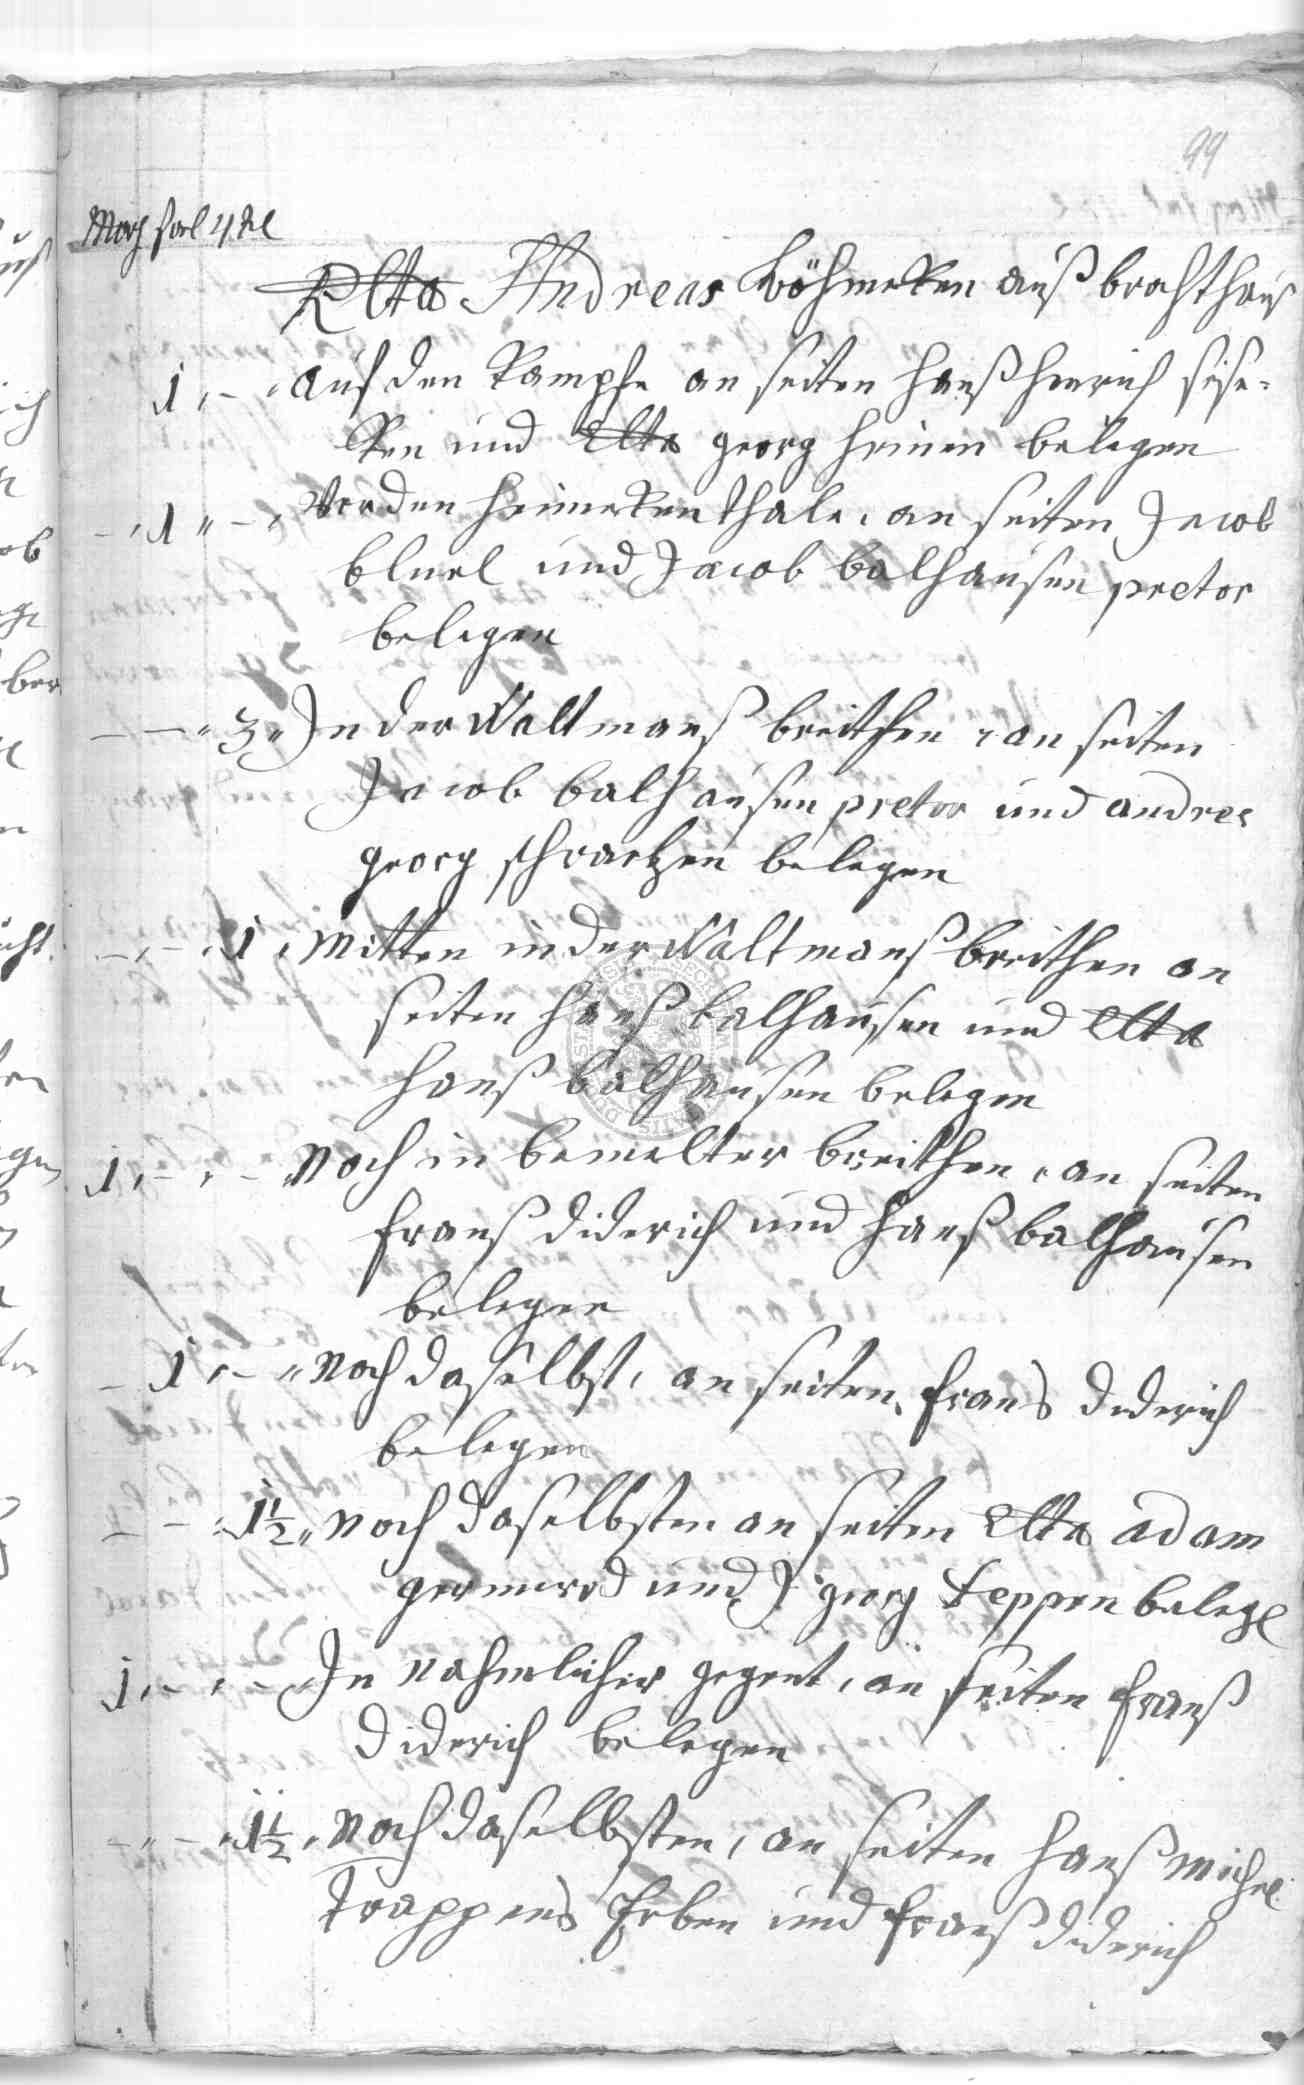 99
Morg sarl 4tel
Relta Andreas Böhmerken auß brochthauß
1 , – , auf den Kampfe an seiten Hanß Henrich sise-
ken und Relta georg Heinen belegen
– , 1 " – , Vor den Heimerkenthale, an seiten Jacob
bluel und Jacob balhausen pretor
belegen
– – " 3 " In der Waltmanß breithen , an seiten
Jacob balhausen pretor und andres
georg schvartzen belegen
– , – , 1 , Mitten in der Waltmanß breithen an
seiten Hanß balhausen und Relta
Hanß balhausen belegen
1 , – , – Noch in bemelter breithen , an seiten
Franß Diderich und Hanß balhausen
belegen
– 1 , – " Noch daselbst, an seiten, Frans Diderich
belegen
– – , 1½ " Noch daselbsten an seiten Relta adam
germerod und J georg Teppen beleg
1 , – , – In nahmlicher gegent, an seiten Franß
Diderich belegen
– " – " 1½ , Noch daselbsten, an seiten Hanß Michel
Trappens Erben und Franß Diderich